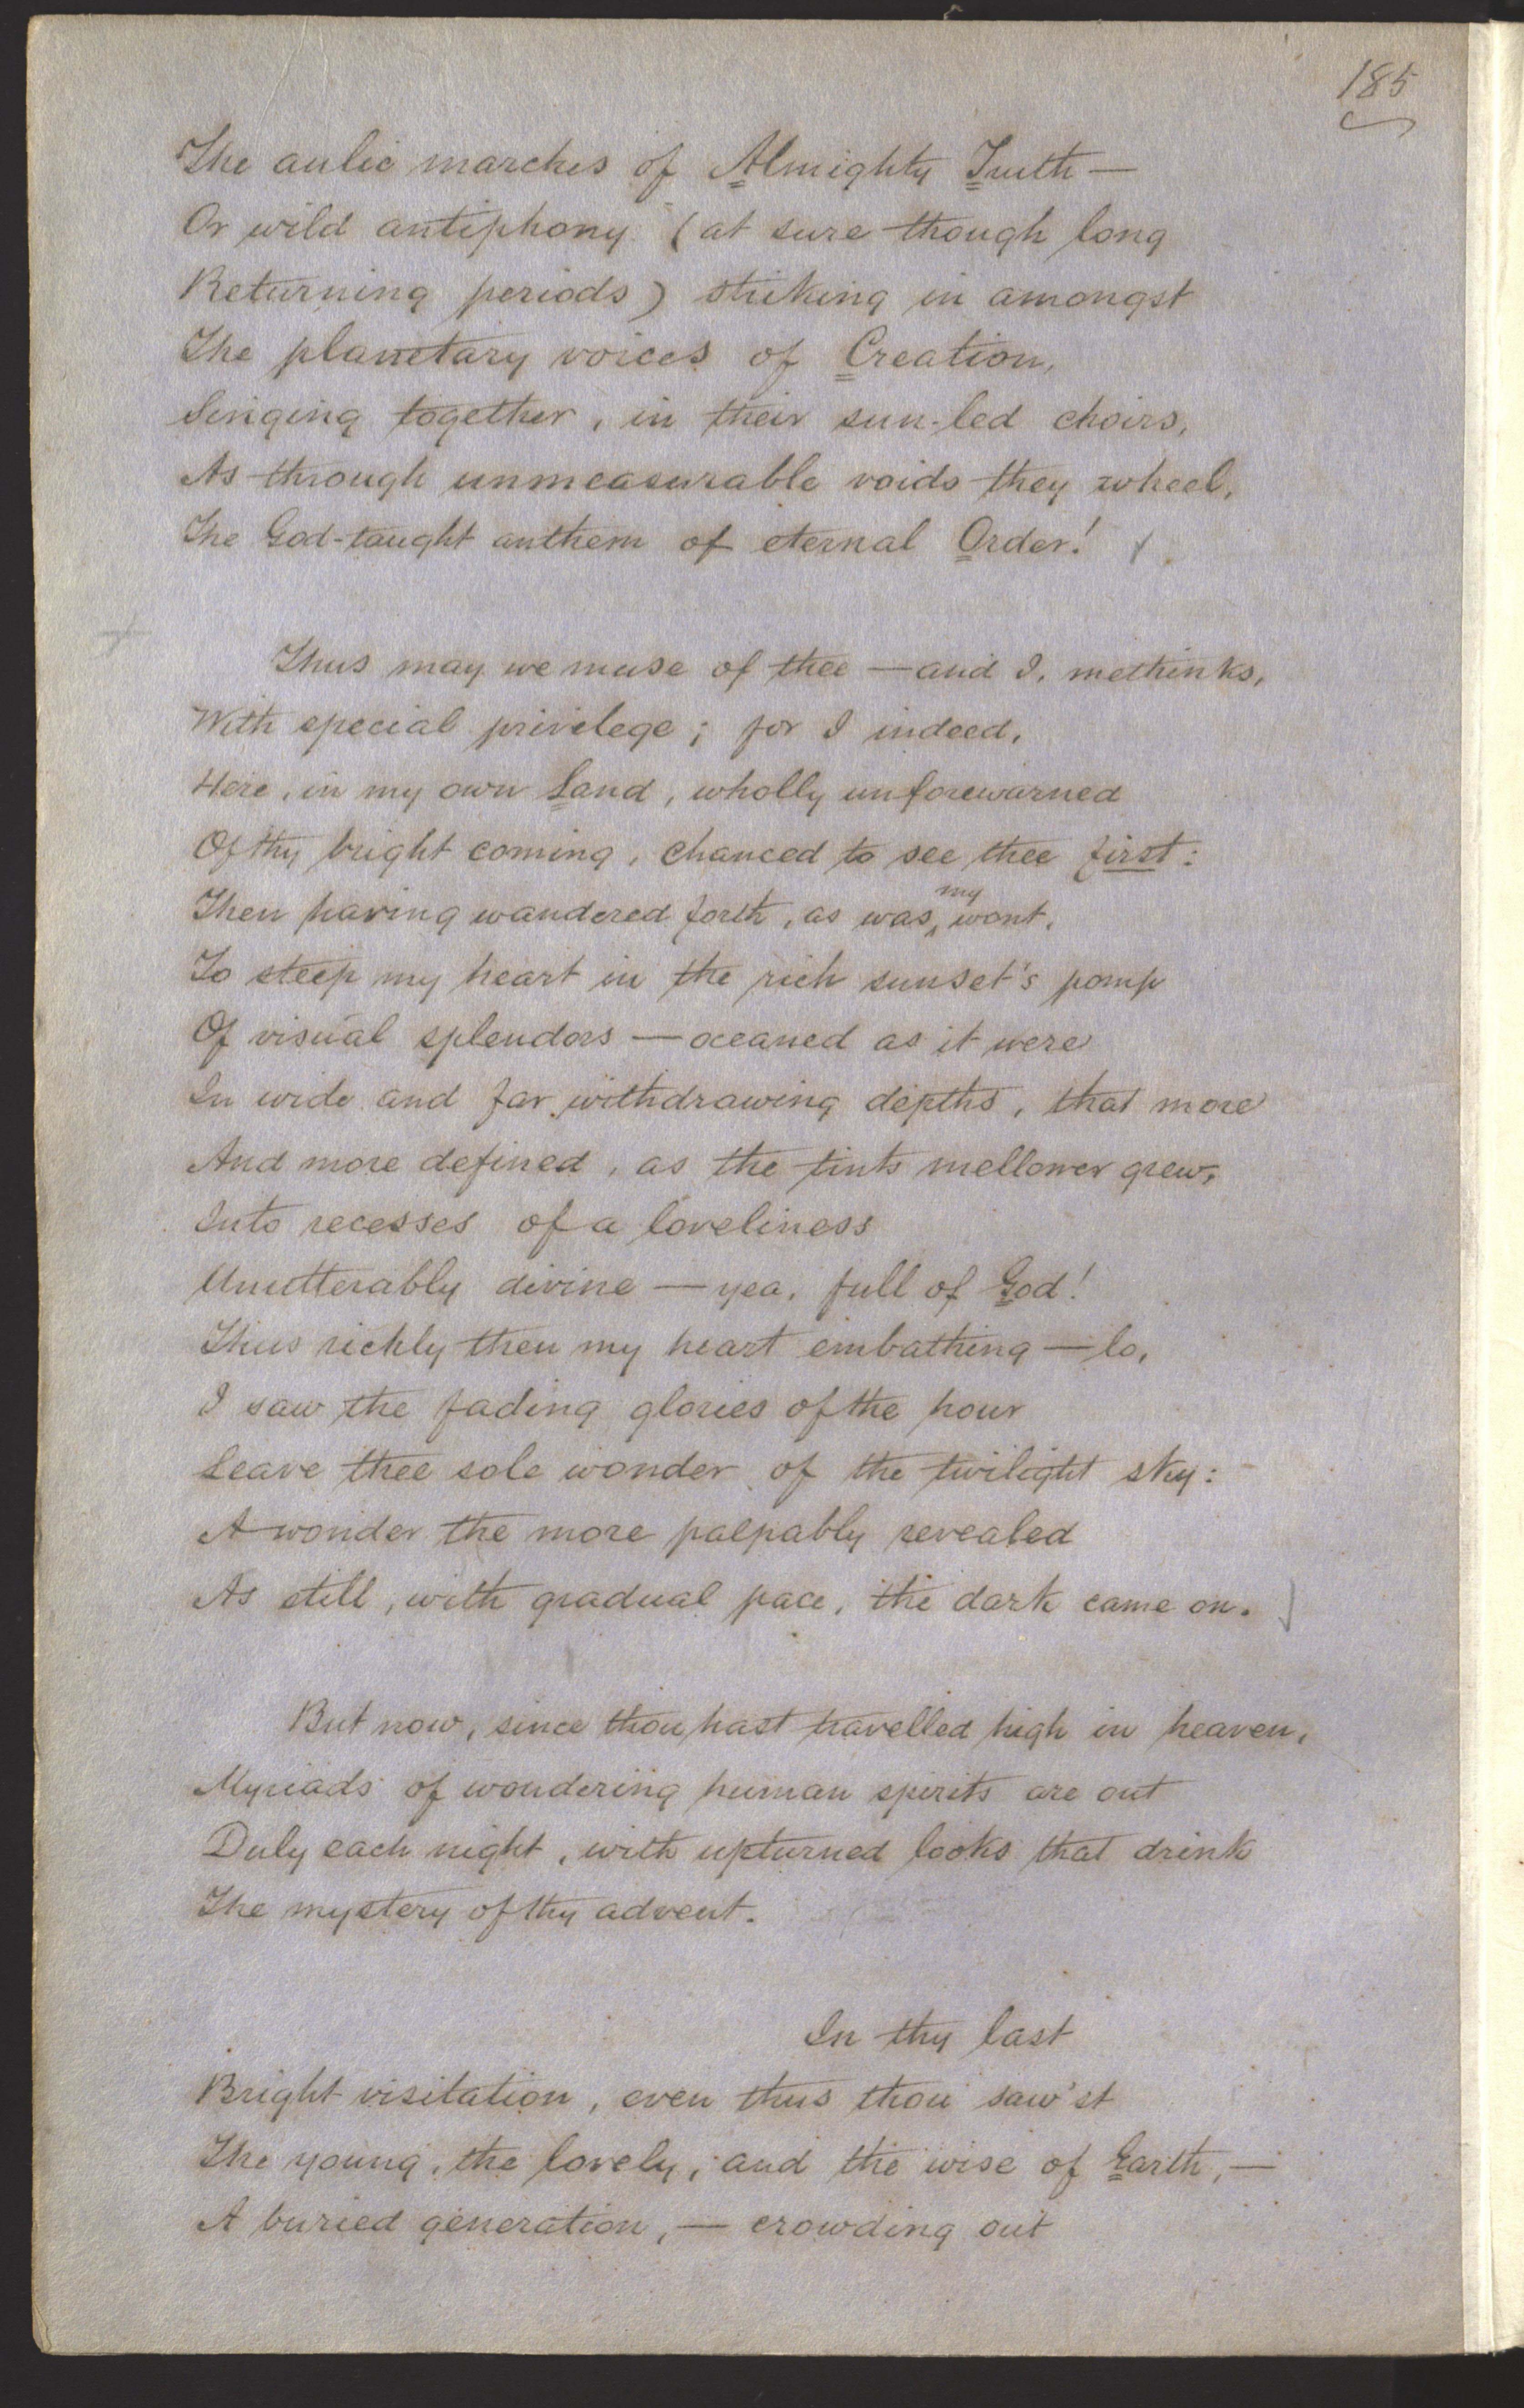 185
The aulic marches of Almighty Truth —
Or wild antiphony (at sure though long
Returning periods) striking in amongst
The planetary voices of Creation,
Singing together, in their sun-led choirs,
As through unmeasurable voids they wheel,
The God-taught anthem of eternal Order!
Thus may we muse of thee — and I, methinks,
With special privilege; for I indeed,
Here, in my own Land, wholly unforewarned
Of thy bright coming, chanced to see thee first:
Then having wandered forth, as was my wont,
To steep my heart in the rich sunset's pomp
Of visual splendors — oceaned as it were
In wide and far withdrawing depths, that more
And more defined, as the tints mellower grew,
Into recesses of a loveliness
Unutterably divine — yea, full of God!
Thus richly then my heart embathing — lo,
I saw the fading glories of the hour
Leave thee sole wonder of the twilight sky:
A wonder the more palpably revealed
As still, with gradual pace, the dark came on.
But now, since thou hast travelled high in heaven,
Myriads of wondering human spirits are out
Duly each night, with upturned looks that drink
The mystery of thy advent.
In thy last
Bright visitation, even thus thou saw'st
The young, the lovely, and the wise of Earth, —
A buried generation, — crowding out